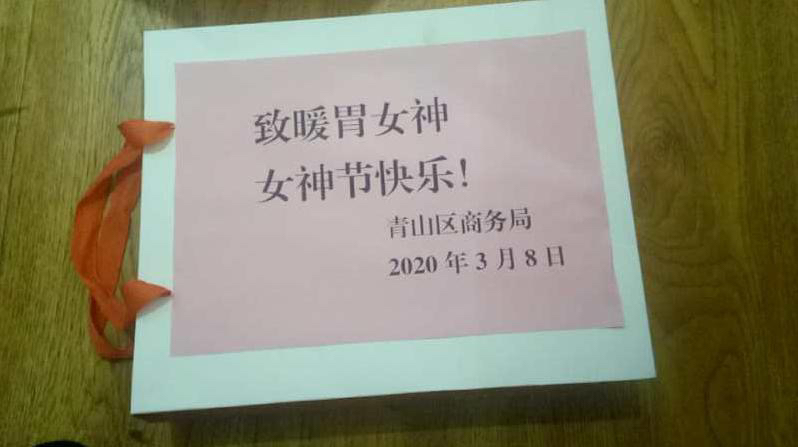 致暖胃女神
女神节快乐!
青山区商务局
2020年3月8日